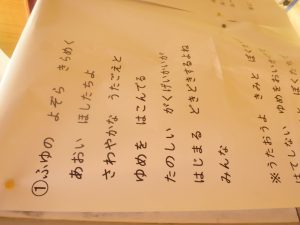 ①ふゆの よぞら きらめく
あおい ほしたちよ
さわやかな うたごえと
ゆめを はこんでる
たのしい がくげいかいが
はじまる どきどきするよね
みんな
※うたおうよ きみと ぼく
ゆめをおいか
はてしない ぼくたち